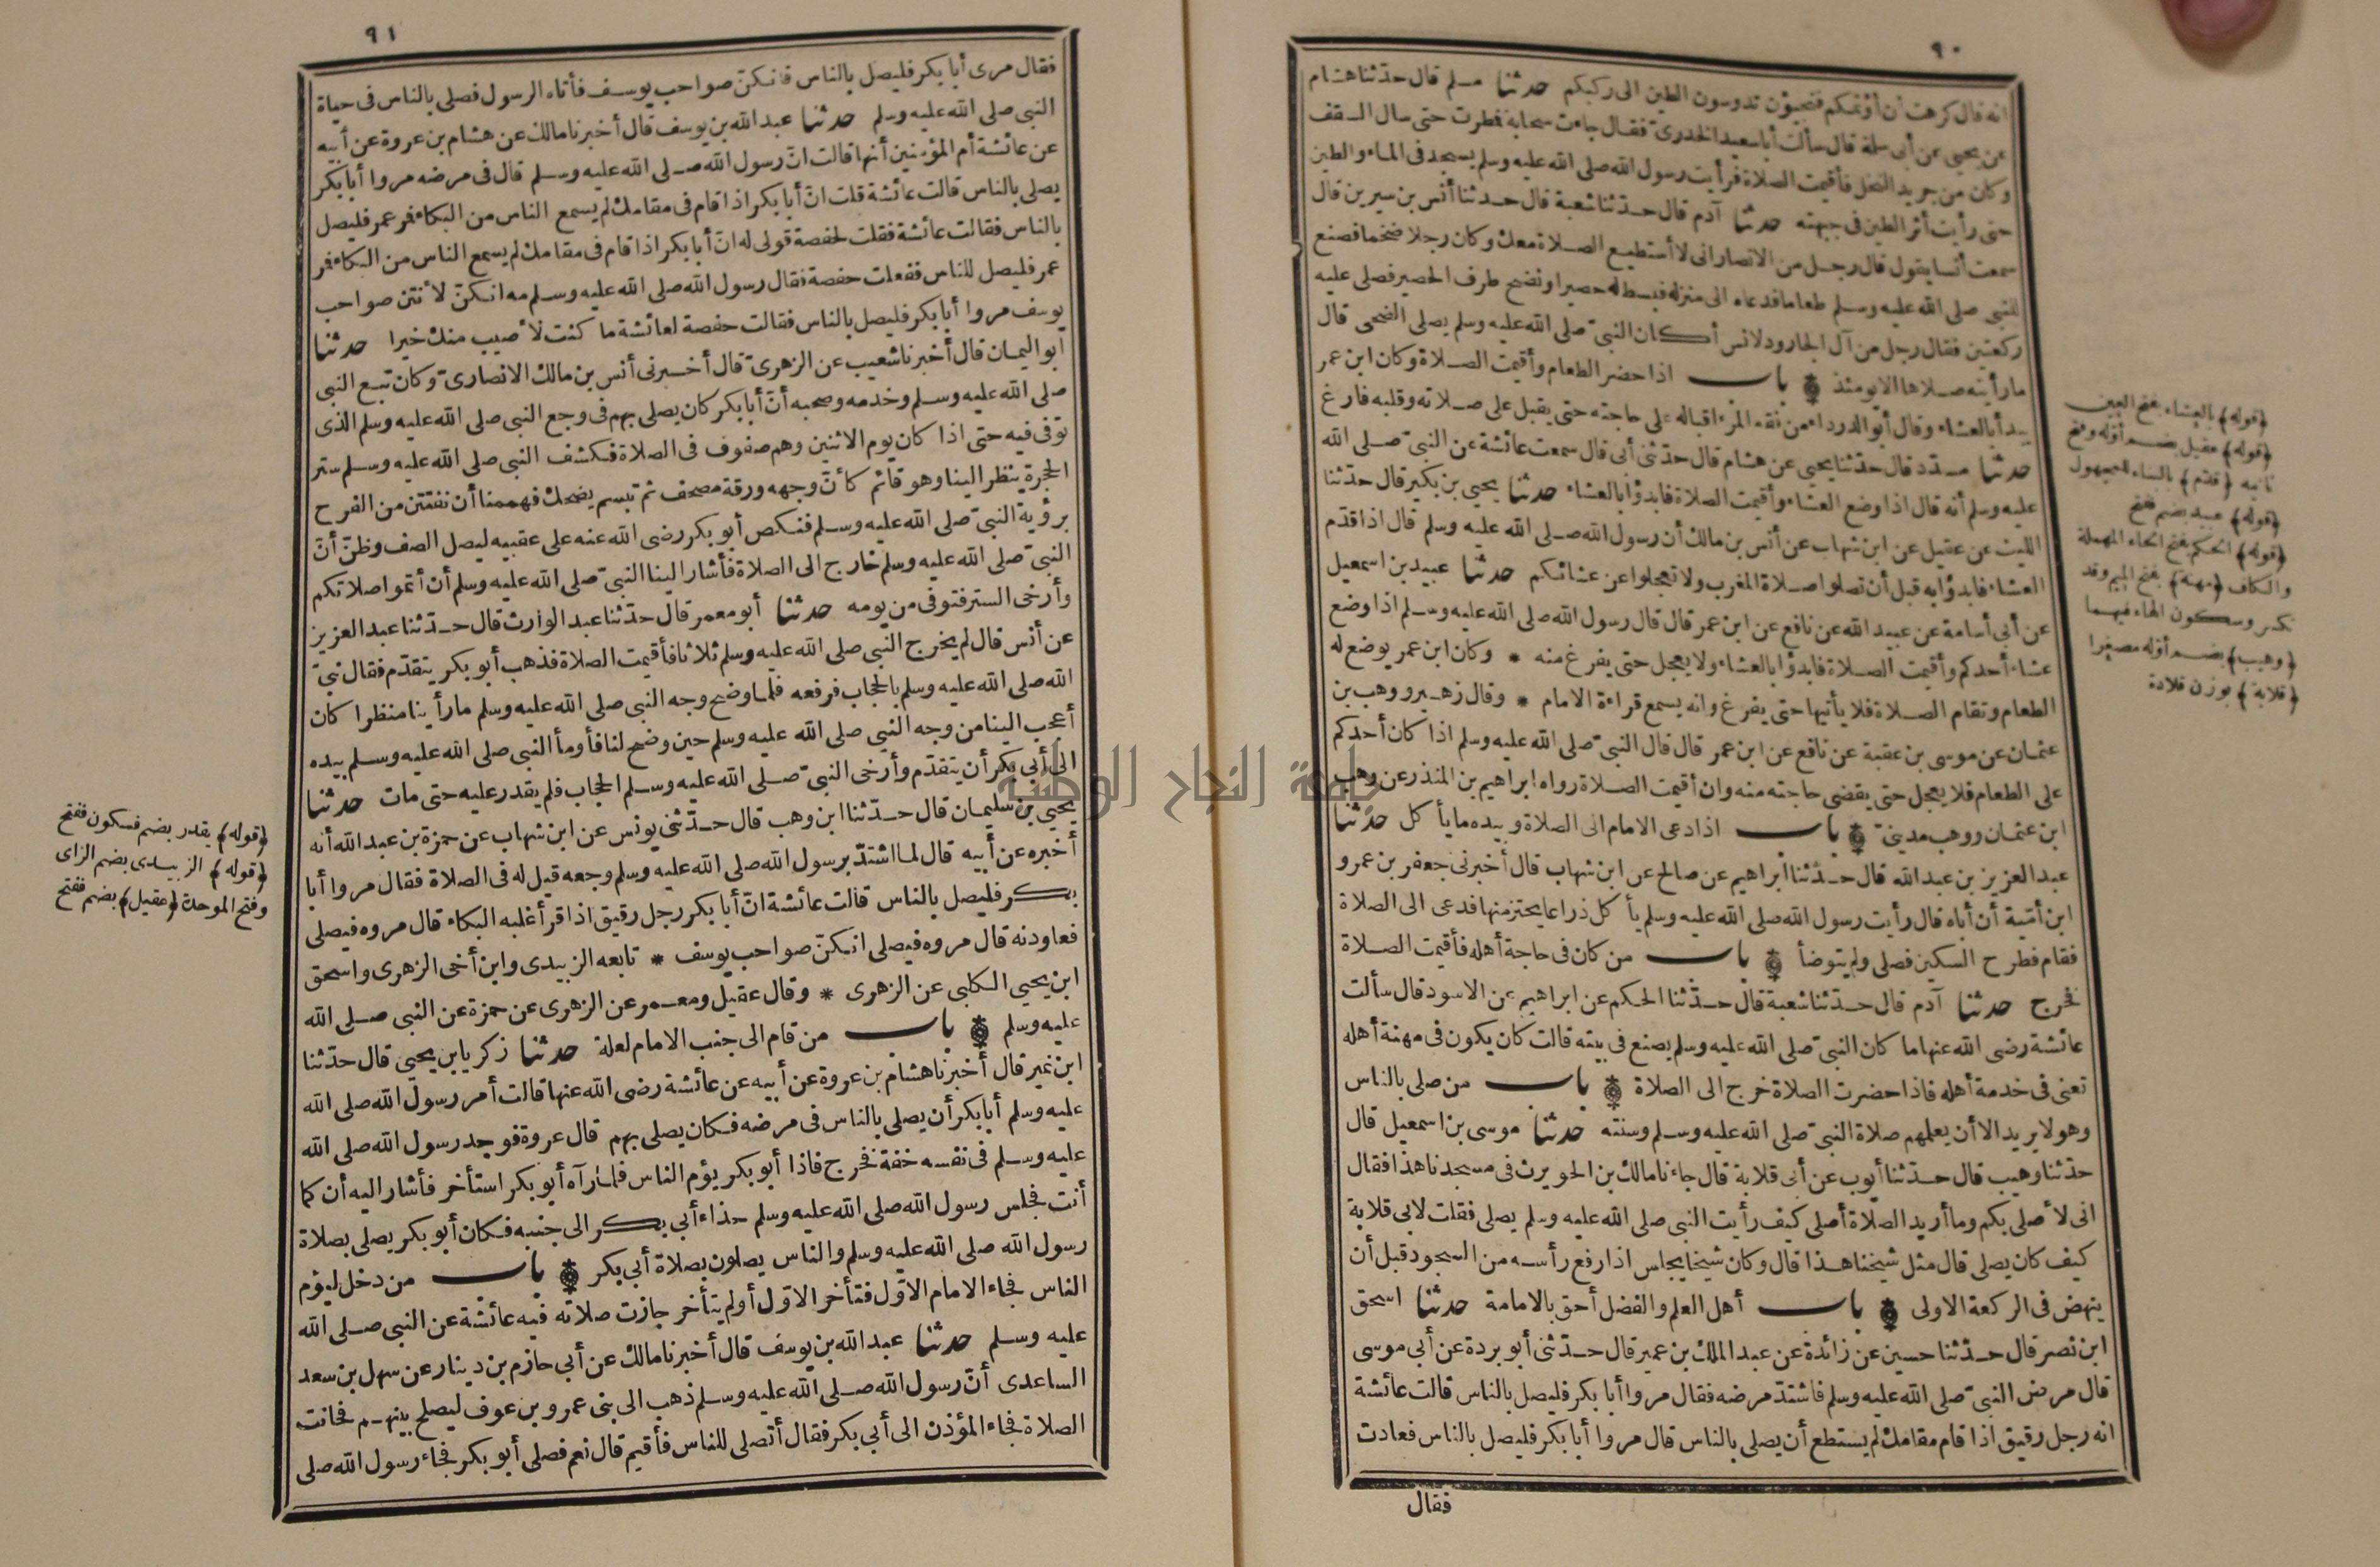 ٩٠
انه قال كرهت ان أؤثمكم فتجيؤن تدوسون الطين الى ركبكم حدثنا مسلم قال حدثنا هشام
عن يحيى عن أبى سلمة قال سألت أبا سعيد الخدرى فقال جاءت سحابة فمطرت حتى سال السقف
وكان من جريد النخل فأقيمت الصلاة فرأيت رسول الله صلى الله عليه وسلم يسجد فى الماء والطين
حتى رأيت أثر الطين فى جبهته حدثنا آدم قال حدثنا شعبة قال حدثنا أنس بن سيرين قال
سمعت أنسا يقول قال رجل من الانصار انى لا أستطيع الصلاة معك وكان رجلا ضخما فصنع
للنبى صلى الله عليه وسلم طعاما فدعاه الى منزله فبسط له حصيرا ونضح طرف الحصير فصلى عليه
ركعتين فقال رجل من آل الجارود لانس أكان النبىّ صلى الله عليه وسلم يصلى الضحى قال
ما رأيته صلاها الا يومئذ باب اذا حضر الطعام وأقيمت الصلاة وكان ابن عمر
يبدأ بالعشاء وقال أبو الدرداء من فقه المرء اقباله على حاجته حتى يقبل على صلاته وقلبه فارغ
حدثنا مسدّد قال حدّثنا يحيى عن هشام قال حدّثنى أبى قال سمعت عائشة عن النبىّ صلى الله
عليه وسلم أنه قال اذا وضع العشاء وأقيمت الصلاة فابدؤا بالعشاء حدثنا يحيى بن بكير قال حدّثنا
الليث عن عقيل عن ابن شهاب عن أنس بن مالك أن رسول الله صلى الله عليه وسلم قال اذا قدّم
العشاء فابدؤا به قبل أن تصلوا صلاة المغرب ولا تعجلوا عن عشائكم حدثنا عبيد بن اسمعيل
عن أبى أسامة عن عبيد الله عن نافع عن ابن عمر قال قال رسول الله صلى الله عليه وسلم اذا وضع
عشاء أحدكم وأقيمت الصلاة فابدؤا بالعشاء ولا يعجل حتى يفرغ منه * وكان ابن عمر يوضع له
الطعام وتقام الصلاة فلا يأتيها حتى يفرغ وانه يسمع قراءة الامام * وقال زهير ووهب بن
عثمان عن موسى بن عقبة عن نافع عن ابن عمر قال قال النبىّ صلى الله عليه وسلم اذا كان أحدكم
على الطعام فلا يعجل حتى يقضى حاجته منه وان أقيمت الصلاة رواه ابراهيم بن المنذر عن وهب
ابن عثمان ووهب مدينىّ باب اذا دعى الامام الى الصلاة وبيده ما يأكل حدّثنا
عبد العزيز بن عبد الله قال حدّثنا ابراهيم عن صالح عن ابن شهاب قال أخبرنى جعفر بن عمرو
ابن أميّة أن أباه قال رأيت رسول الله صلى الله عليه وسلم يأكل ذراعا يحتز منها فدعى الى الصلاة
فقام فطرح السكين فصلى ولم يتوضأ باب من كان فى حاجة أهله فأقيمت الصلاة
فخرج حدثنا آدم قال حدّثنا شعبة قال حدّثنا الحكم عن ابراهيم عن الاسود قال سألت
عائشة رضى الله عنها ما كان النبىّ صلى الله عليه وسلم يصنع فى بيته قالت كان يكون فى مهنة أهله
تعنى فى خدمة أهله فاذا حضرت الصلاة خرج الى الصلاة باب من صلى بالناس
وهو لا يريد الا أن يعلمهم صلاة النبىّ صلى الله عليه وسلم وسنته حدثنا موسى بن اسمعيل قال
حدّثنا وهيب قال حدّثنا أيوب عن أبى قلابة قال جاءنا مالك بن الحويرث فى مسجدنا هذا فقال
انى لأصلى بكم وما أريد الصلاة أصلى كيف رأيت النبى صلى الله عليه وسلم يصلى فقلت لابى قلابة
كيف كان يصلى قال مثل شيخنا هذا قال وكان شيخا يجلس اذا رفع رأسه من السجود قبل أن
ينهض فى الركعة الاولى باب أهل العلم والفضل أحق بالامامة حدثنا اسحق
ابن نصر قال حدّثنا حسين عن زائدة عن عبد الملك بن عمير قال حدّثنى أبو بردة عن أبى موسى
قال مرض النبىّ صلى الله عليه وسلم فاشتدّ مرضه فقال مروا أبا بكر فليصل بالناس قالت عائشة
انه رجل رقيق اذا قام مقامك لم يستطع أن يصلى بالناس قال مروا أبا بكر فليصل بالناس فعادت
فقال
(قوله) بالعشاء بفتح العين
(قوله) عقيل بضم أوّله وفتح
ثانيه (قدّم) بالبناء للمجهول
(قوله) عبيد بضم ففتح
(قوله) الحكم بفتح الحاء المهملة
والكاف (مهنة) بفتح الميم وقد
تكسر وسكون الهاء فيهما
(وهيب) بضم أوّله مصغرا
(قلابة) بوزن قلادة
٩١
فقال مرى أبا بكر فليصل بالناس فانكنّ صواحب يوسف فأتاه الرسول فصلى بالناس فى حياة
النبى صلى الله عليه وسلم حدثنا عبد الله بن يوسف قال أخبرنا مالك عن هشام بن عروة عن أبيه
عن عائشة أم المؤمنين أنها قالت انّ رسول الله صلى الله عليه وسلم قال فى مرضه مروا أبا بكر
يصلى بالناس قالت عائشة قلت انّ أبا بكر اذا قام فى مقامك لم يسمع الناس من البكاء فمر عمر فليصل
بالناس فقالت عائشة فقلت لحفصة قولى له انّ أبا بكر اذا قام فى مقامك لم يسمع الناس من البكاء فمر
عمر فليصل للناس ففعلت حفصة فقال رسول الله صلى الله عليه وسلم مه انكنّ لأنتن صواحب
يوسف مروا أبا بكر فليصل بالناس فقالت حفصة لعائشة ما كنت لأصيب منك خيرا حدثنا
ابو اليمان قال أخبرنا شعيب عن الزهرىّ قال أخبرنى أنس بن مالك الانصارىّ وكان تبع النبى
صلى الله عليه وسلم وخدمه وصحبه أنّ أبا بكر كان يصلى بهم فى وجع النبى صلى الله عليه وسلم الذى
توفى فيه حتى اذا كان يوم الاثنين وهم صفوف فى الصلاة فكشف النبى صلى الله عليه وسلم ستر
الحجرة ينظر الينا وهو قائم كأنّ وجهه ورقة مصحف ثم تبسم يضحك فهممنا أن نفتتن من الفرح
برؤية النبىّ صلى الله عليه وسلم فنكص أبو بكر رضى الله عنه على عقبيه ليصل الصف وظنّ أنّ
النبىّ صلى الله عليه وسلم خارج الى الصلاة فأشار الينا النبىّ صلى الله عليه وسلم أن أتموا صلاتكم
وأرخى الستر فتوفى من يومه حدثنا أبو معمر قال حدّثنا عبد الوارث قال حدّثنا عبد العزيز
عن أنس قال لم يخرج النبى صلى الله عليه وسلم ثلاثا فأقيمت الصلاة فذهب أبو بكر يتقدّم فقال نبىّ
الله صلى الله عليه وسلم بالحجاب فرفعه فلما وضح وجه النبى صلى الله عليه وسلم ما رأينا منظرا كان
أعجب الينا من وجه النبى صلى الله عليه وسلم حين وضح لنا فأومأ النبى صلى الله عليه وسلم بيده
الى أبى بكر أن يتقدّم وأرخى النبىّ صلى الله عليه وسلم الحجاب فلم يقدر عليه حتى مات حدثنا
يحيى بن سليمان قال حدّثنا ابن وهب قال حدّثنى يونس عن ابن شهاب عن حمزة بن عبد الله أنه
أخبره عن أبيه قال لما اشتدّ برسول الله صلى الله عليه وسلم وجعه قيل له فى الصلاة فقال مروا أبا
بكر فليصل بالناس قالت عائشة انّ أبا بكر رجل رقيق اذا قرأ غلبه البكاء قال مروه فيصلى
فعاودته قال مروه فيصلى انكنّ صواحب يوسف * تابعه الزبيدى وابن أخى الزهرى واسحق
ابن يحيى الكلبى عن الزهرى * وقال عقيل ومعمر عن الزهرى عن حمزة عن النبى صلى الله
عليه وسلم باب من قام الى جنب الامام لعلة حدثنا زكريا بن يحيى قال حدّثنا
ابن نمير قال أخبرنا هشام بن عروة عن أبيه عن عائشة رضى الله عنها قالت أمر رسول الله صلى الله
عليه وسلم أبا بكر أن يصلى بالناس فى مرضه فكان يصلى بهم قال عروة فوجد رسول الله صلى الله
عليه وسلم فى نفسه خفة فخرج فاذا أبو بكر يؤم الناس فلما رآه أبو بكر استأخر فأشار اليه أن كما
أنت فجلس رسول الله صلى الله عليه وسلم حذاء أبى بكر الى جنبه فكان أبو بكر يصلى بصلاة
رسول الله صلى الله عليه وسلم والناس يصلون بصلاة أبى بكر باب من دخل ليؤم
الناس فجاء الامام الاوّل فتأخر الاوّل أو لم يتأخر جازت صلاته فيه عائشة عن النبى صلى الله
عليه وسلم حدثنا عبد الله بن يوسف قال أخبرنا مالك عن أبى حازم بن دينار عن سهل بن سعد
الساعدى أنّ رسول الله صلى الله عليه وسلم ذهب الى بنى عمرو بن عوف ليصلح بينهم فحانت
الصلاة فجاء المؤذن الى أبى بكر فقال أتصلى للناس فأقيم قال نعم فصلى أبو بكر فجاء رسول الله صلى
(قوله) يقدر بضم فسكون ففتح
(قوله) الزبيدى بضم الزاى
وفتح الموحدة (عقيل) بضم ففتح
جامعة النجاح الوطنية